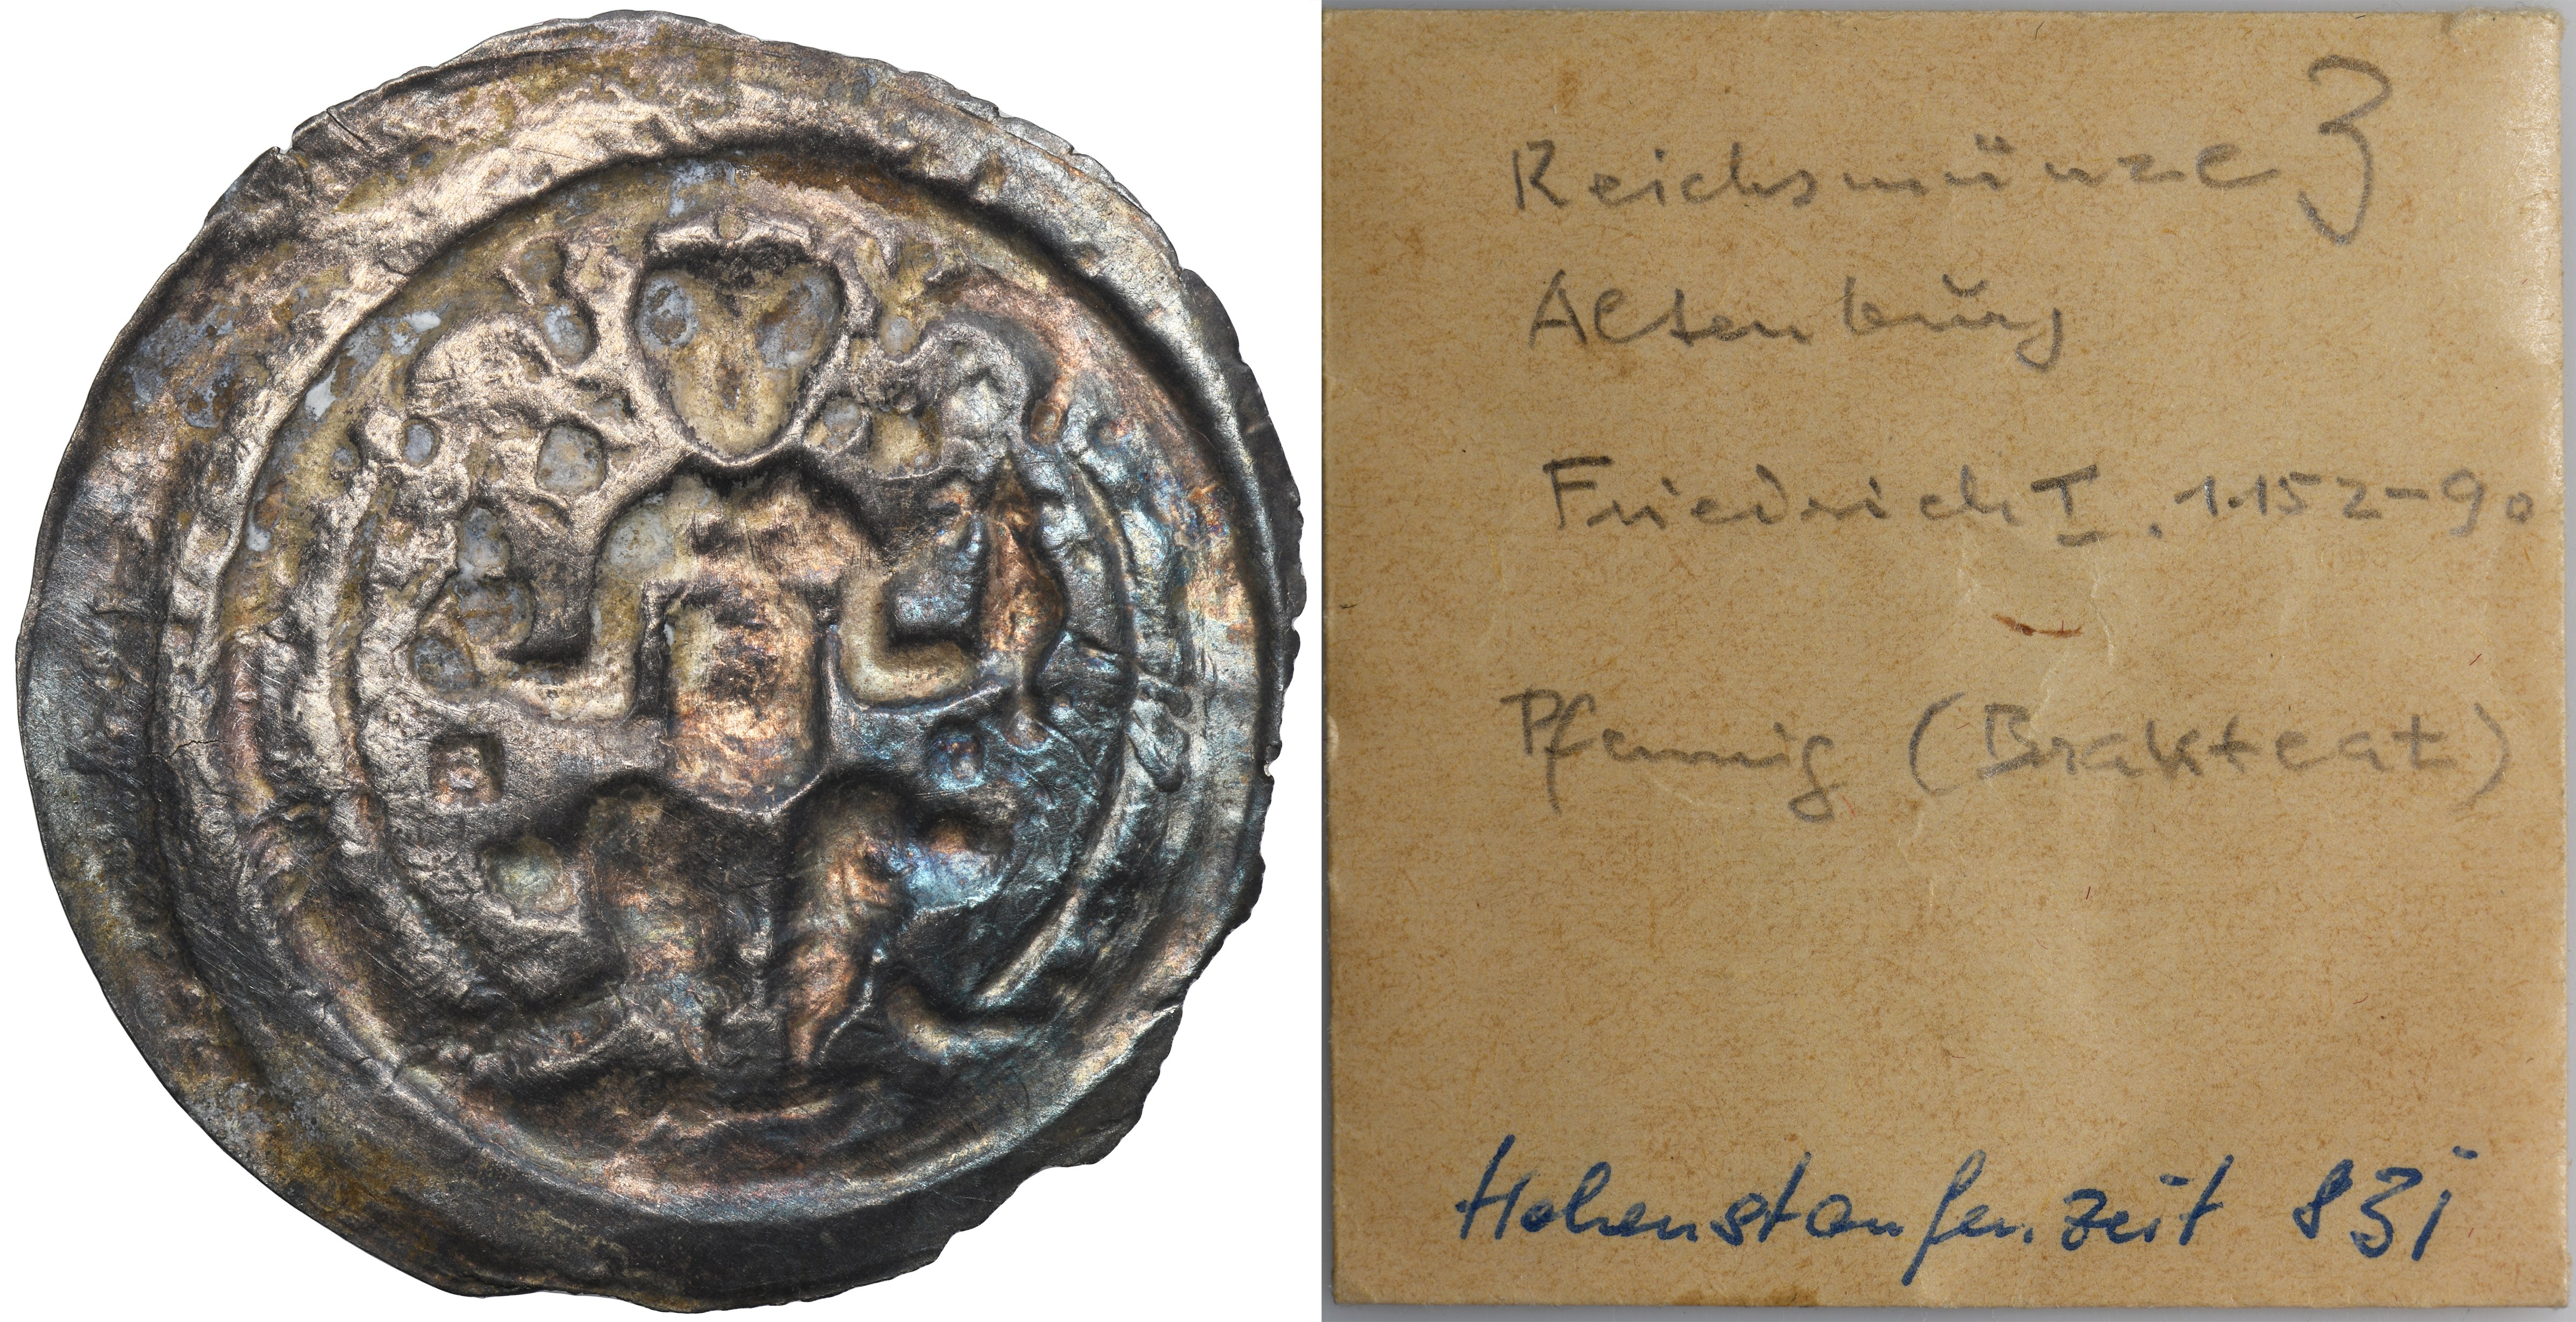 Reichsmünze 3
Altenburg
Friedrich I. 1152-90
Pfennig (Brakteat)
Hohenstaufenzeit 831